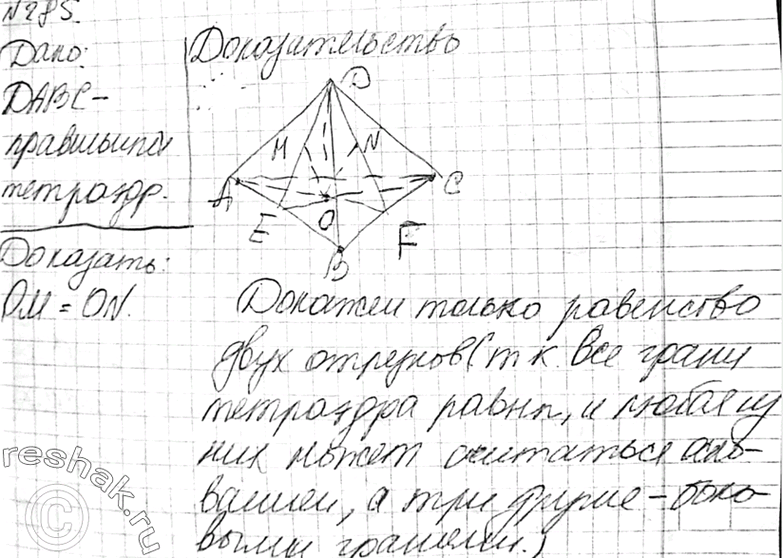 №285.
Дано:
DABC –
правильный
тетраэдр.
Доказать:
OM = ON.
Доказательство
D
M
N
A
C
E
O
F
B
Докажем только равенство
двух отрезков (т к. все грани
тетраэдра равны, и любая из
них может считаться осно-
ванием, а три другие – боко
выми гранями.)
© reshak.ru